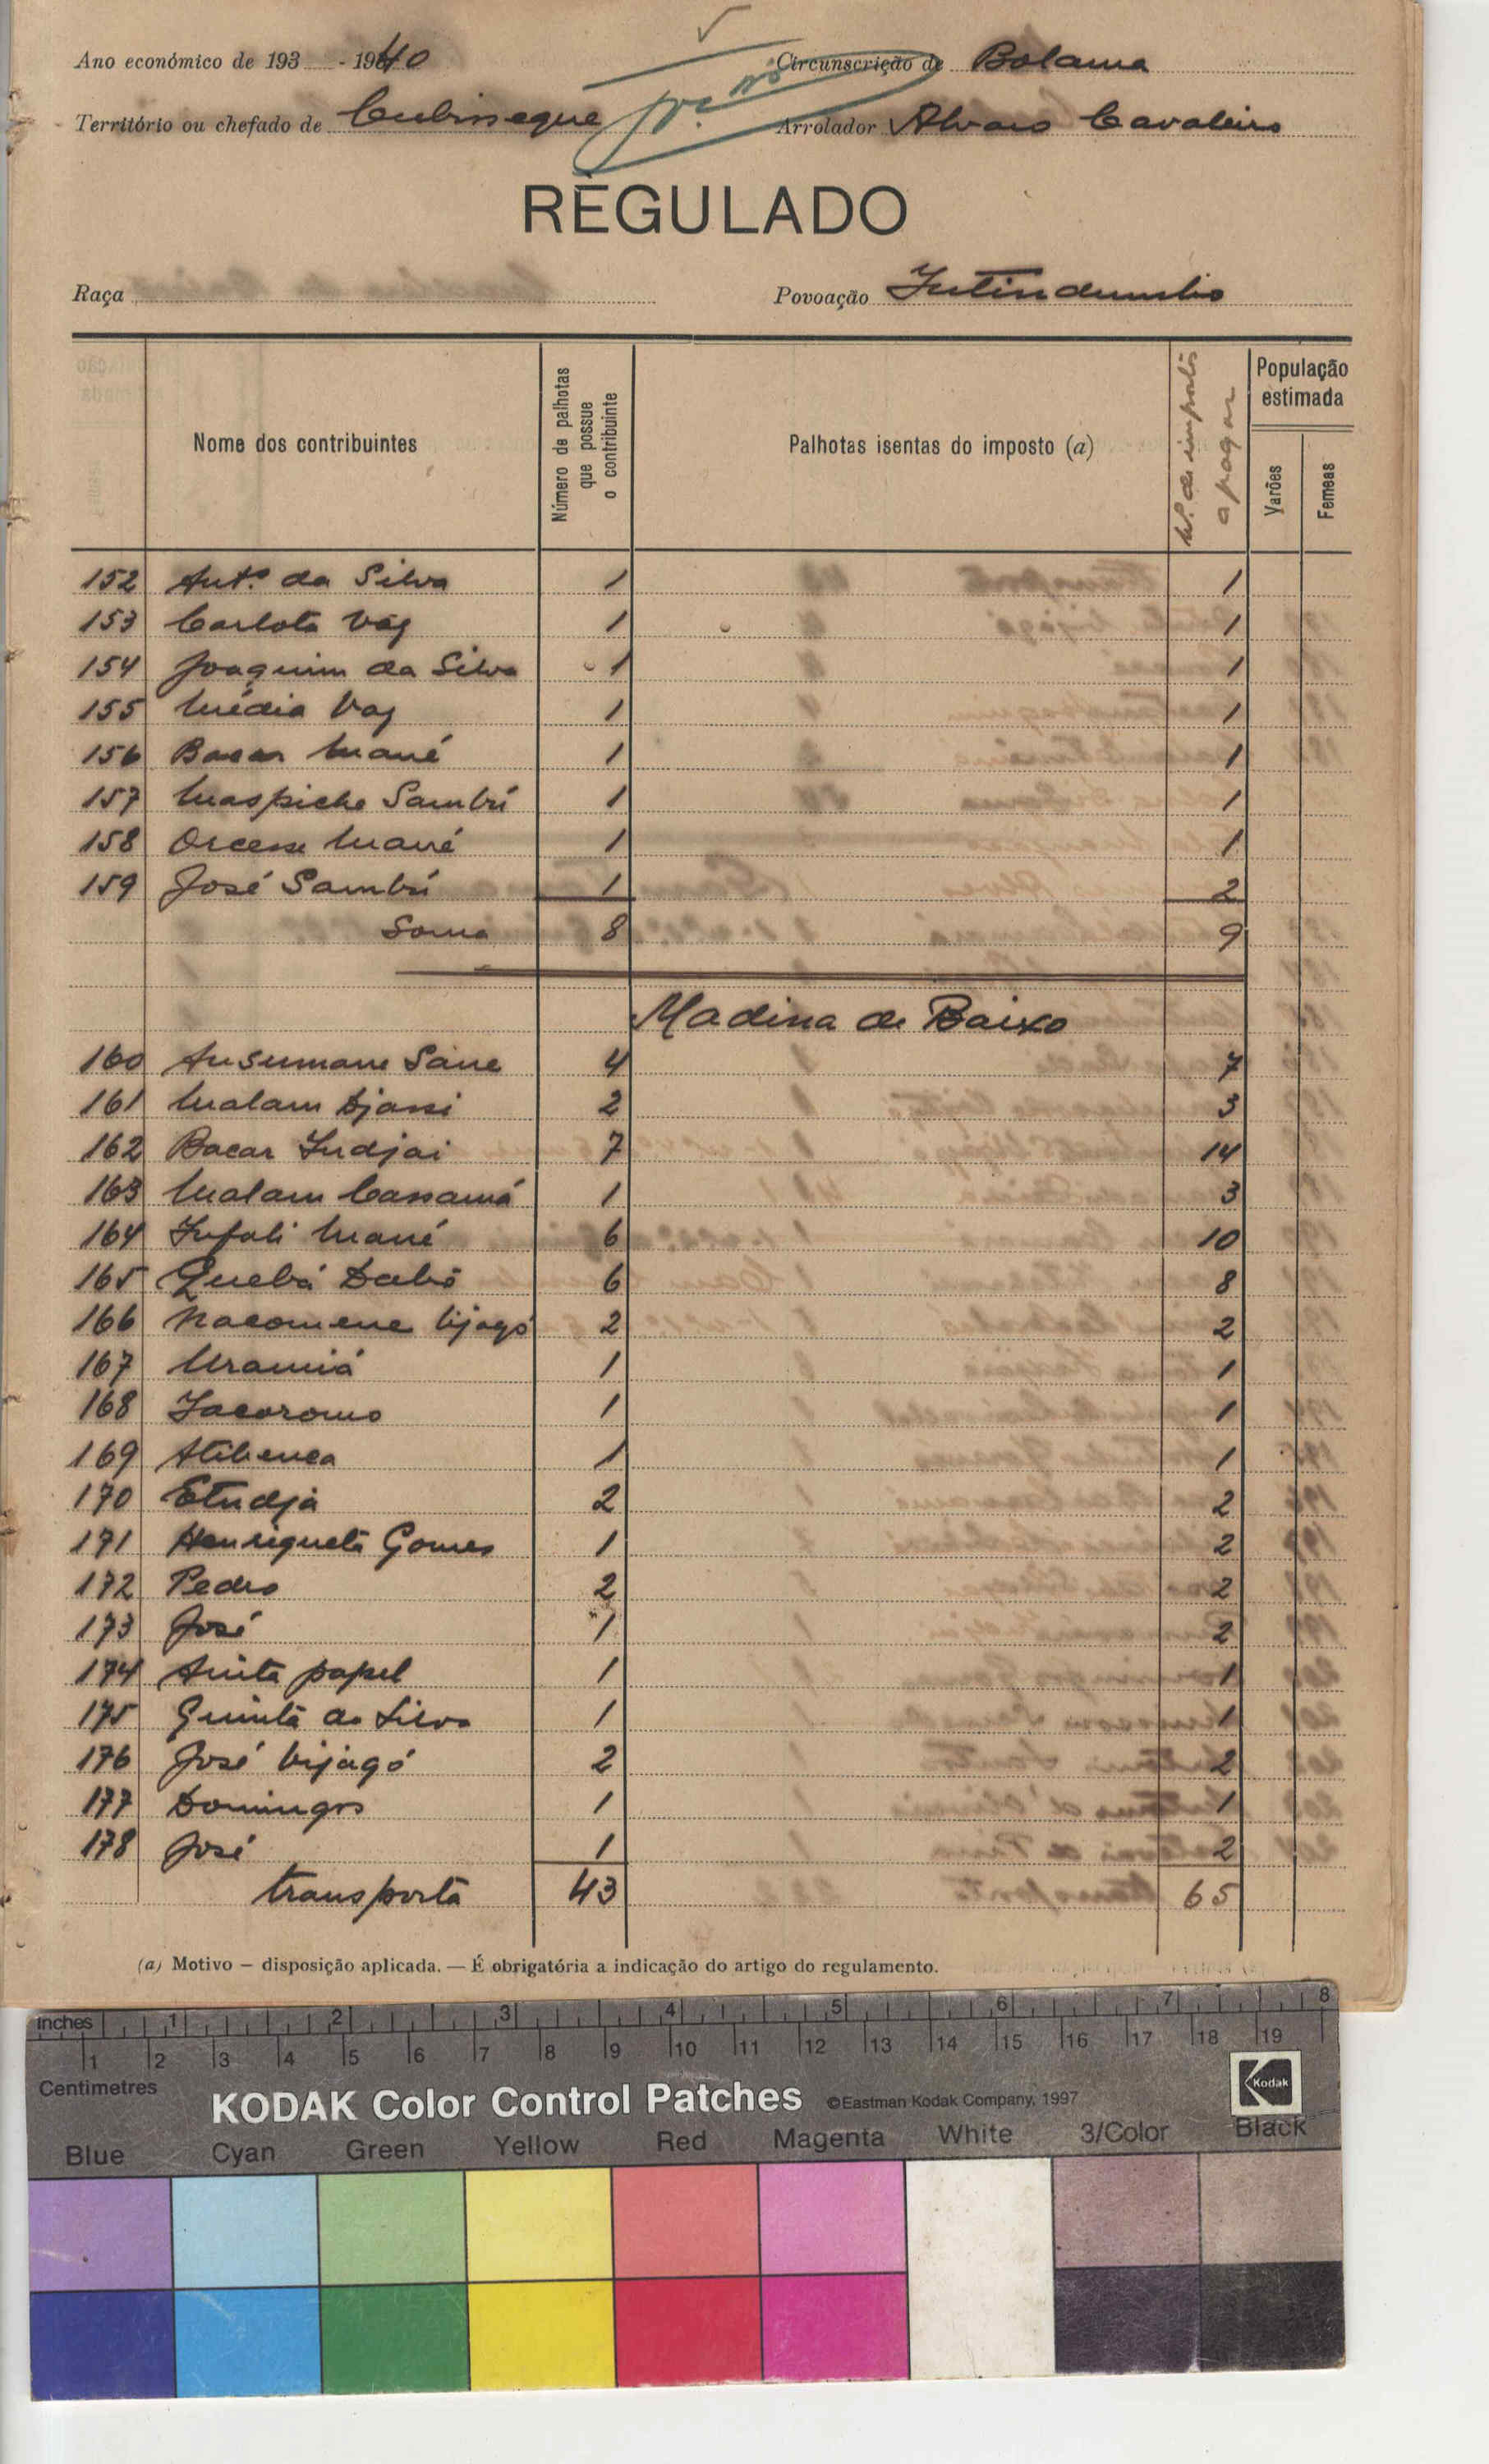 Ano económico de 193 - 1940
Circunscrição de Bolama
Território ou chefado de
Arrolador Alvaro Cavaleiro
REGULADO
Raça
Povoação
Nome dos contribuintes
Número de palhotas que possue o contribuinte
Palhotas isentas do imposto (a)
N.º de impostos a pagar
População estimada
Varões
Femeas
152 Ant.º da Silva 1 1
153 Carlota Vaz 1 1
154 Joaquim da Silva 1 1
155 Vaz 1 1
156 Bacar Mané 1 1
157 Maspiche Sambú 1 1
158 Mané 1 1
159 José Sambú 1 2
Soma 8 9
Madina de Baixo
160 Ansumane Sane 4 7
161 Malam Djassi 2 3
162 Bacar Indjai 7 14
163 Malam Cassamá 1 3
164 Infali Mané 6 10
165 Quebá Dabó 6 8
166 Nacomene bijagó 2 2
167 1 1
168 1 1
169 1 1
170 Etudja 2 2
171 Henriqueta Gomes 1 2
172 Pedro 2 2
173 José 1 2
174 Anita papel 1 1
175 Quinta da Silva 1 1
176 José bijagó 2 2
177 Domingos 1 1
178 José 1 2
transporta 43 65
(a) Motivo — disposição aplicada. — É obrigatória a indicação do artigo do regulamento.
inches 1 2 3 4 5 6 7 8
1 2 3 4 5 6 7 8 9 10 11 12 13 14 15 16 17 18 19
Centimetres
KODAK Color Control Patches ©Eastman Kodak Company, 1997
Kodak
Blue Cyan Green Yellow Red Magenta White 3/Color Black